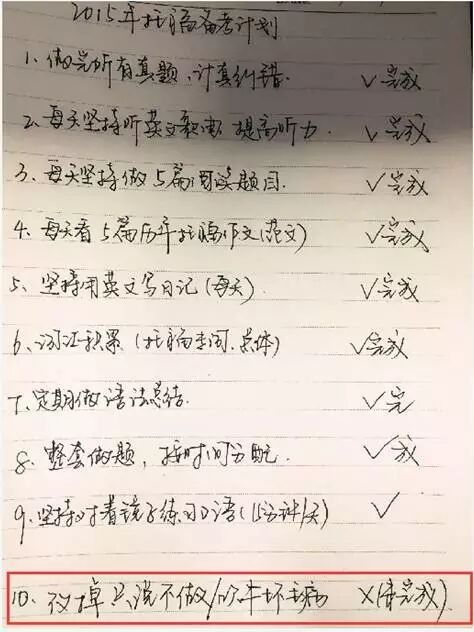 2015年托福备考计划
1. 做完所有真题,计真纠错. ✓完成
2. 每天坚持听英文歌曲 提高听力. ✓完成
3. 每天坚持做5篇阅读题目. ✓完成
4. 每天看5篇历年托福作文(范文) ✓完成
5. 坚持用英文写日记(每天). ✓完成
6. 词汇积累(托福专词.总体) ✓完成
7. 定期做语法总结. ✓完
8. 整套做题,按时间分配. ✓成
9. 坚持对着镜子练习口语(15分钟/天) ✓
10. 改掉只说不做/吹牛坏毛病 ×(未完成)